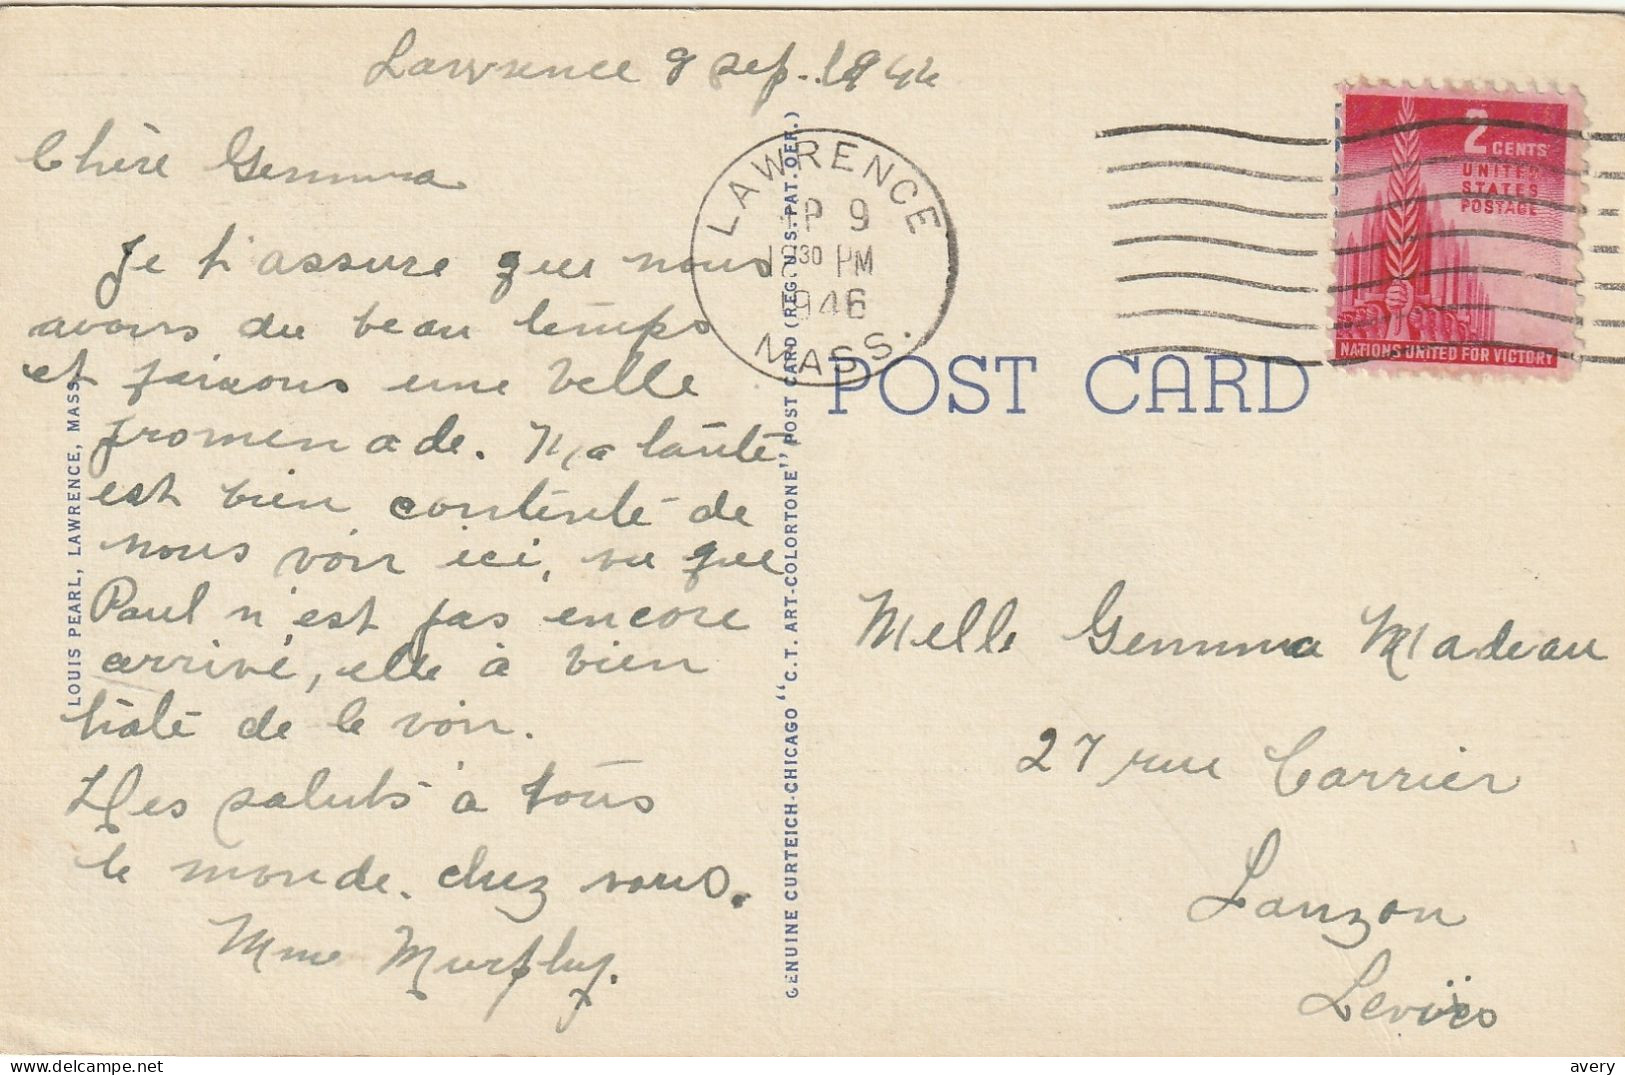 Lawrence 9 sep. 1946
Chère Gemma
Je t'assure que nous
avons du beau temps
et faisons une belle
promenade. Ma tante
est bien contente de
nous voir ici, vu que
Paul n'est pas encore
arrivé, elle à bien
hâte de le voir.
Mes saluts à tous
le monde. chez vous.
Mme Murphy.
LOUIS PEARL, LAWRENCE, MASS.
GENUINE CURTEICH-CHICAGO "C.T. ART-COLORTONE" POST CARD (REG. U.S. PAT. OFF.)
LAWRENCE
P 9
30 PM
1946
MASS.
2
CENTS
UNITED
STATES
POSTAGE
NATIONS UNITED FOR VICTORY
POST CARD
Melle Gemma Nadeau
27 rue Carrier
Lauzon
Levis
avery